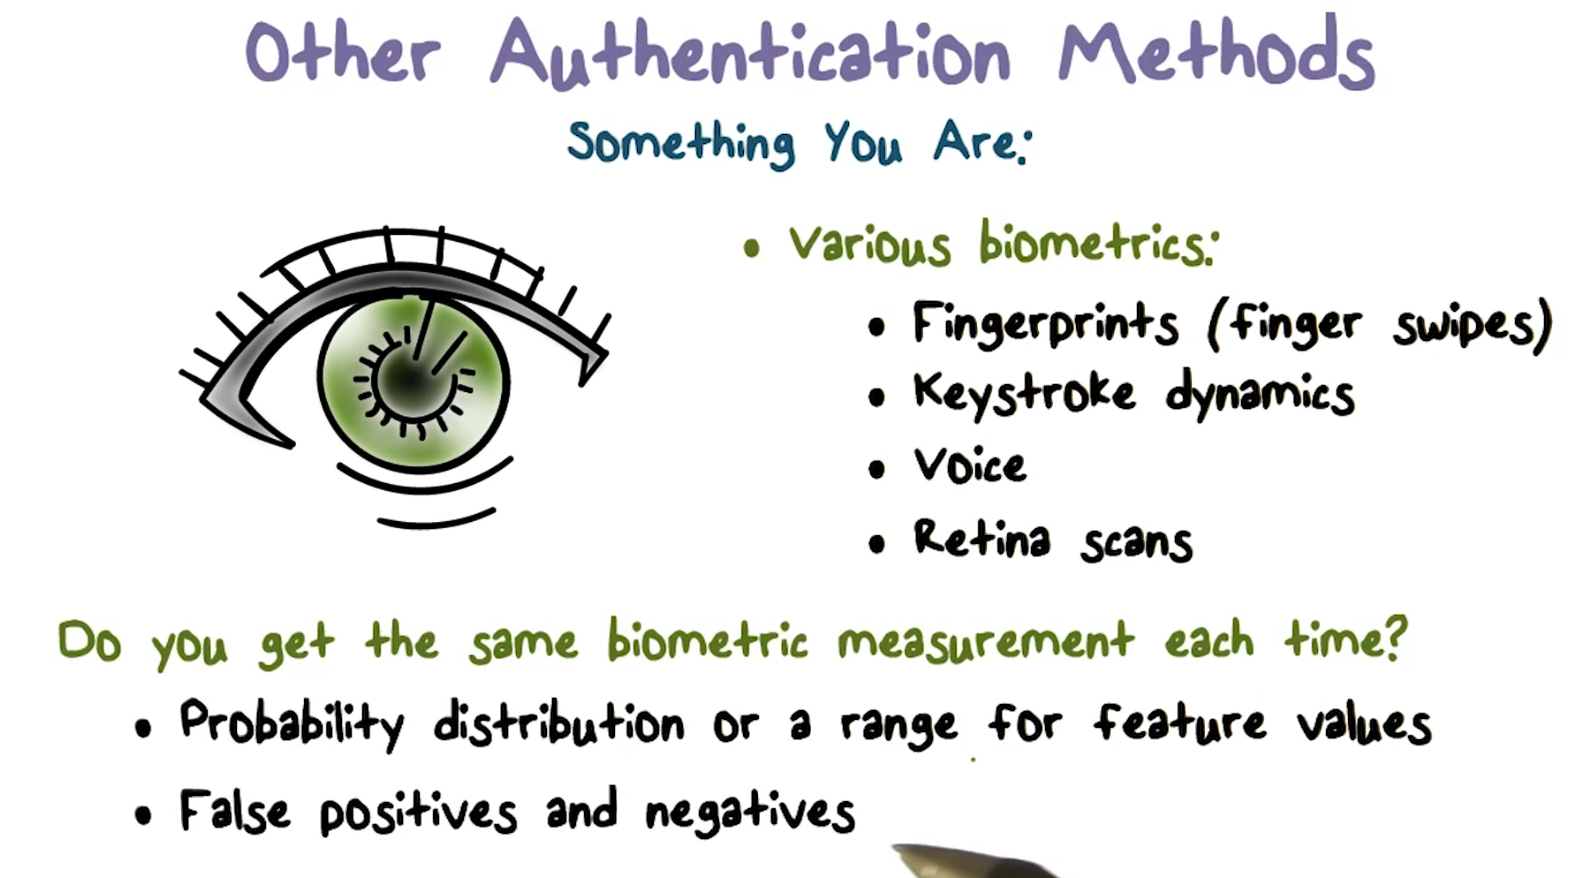 Other Authentication Methods
Something You Are:
• Various biometrics:
• Fingerprints (finger swipes)
• Keystroke dynamics
• Voice
• Retina scans
Do you get the same biometric measurement each time?
• Probability distribution or a range for feature values
• False positives and negatives